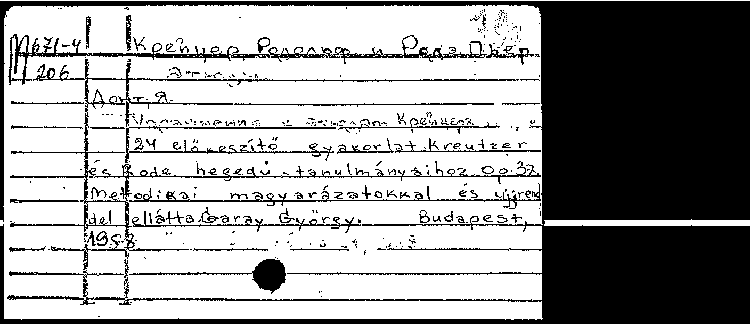 М671-4 Крейцер, Родольф и Роде Пьер
206 Этюды
Донт, Я.
Упражнения к этюдам Крейцера
24 előkészítő gyakorlat Kreutzer
és Rode hegedű-tanulmányaihoz Op.37.
Metodikai magyarázatokkal és ujjrend
del ellátta Garay György. Budapest,
1958